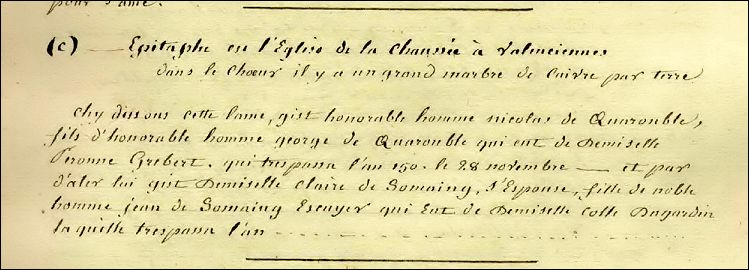 pour l'ame.
(c) — Epitaphe en l'Eglise de la Chaussée à Valenciennes
dans le Choeur il y a un grand marbre de Cuivre par terre
Chy dissous cette lame, gist honorable homme nicolas de Quarouble,
fils d'honorable homme george de Quarouble qui eut de Demiselle
Peronne Grebert. qui trespassa l'an 150. le 28 novembre — et par
d'aler lui gist Demiselle Claire de Somaing, s'Epouse, fille de noble
homme jean de Somaing Escuyer qui Eut de Demiselle Colle Dugardin
laquille trespassa l'an